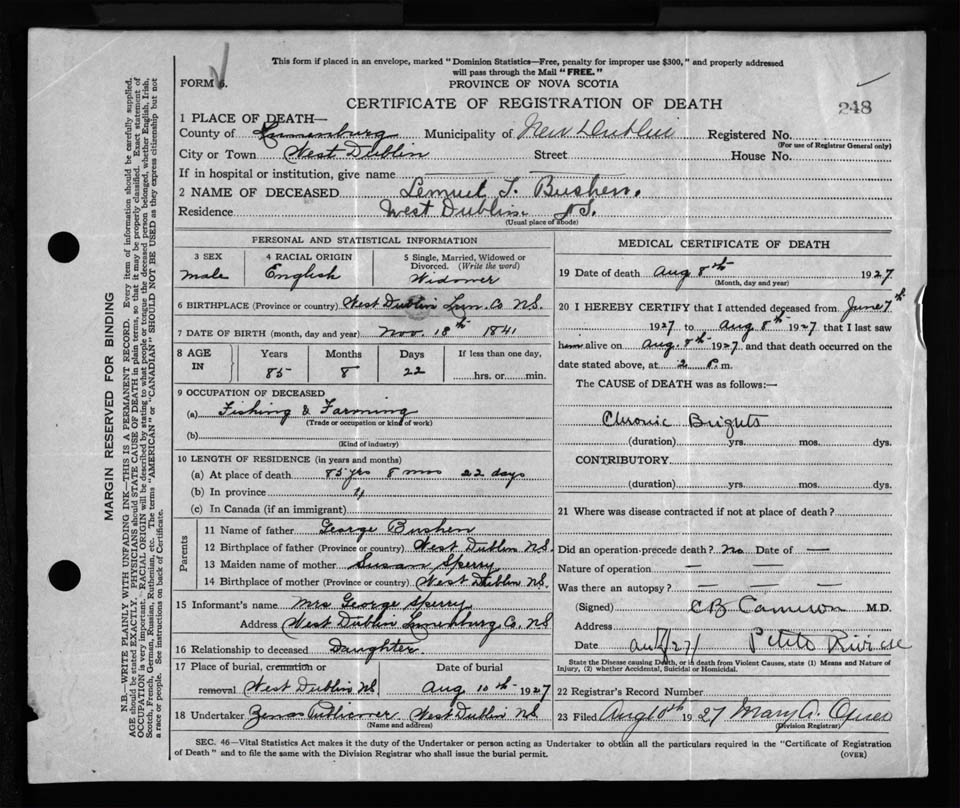 This form if placed in an envelope, marked "Dominion Statistics—Free, penalty for improper use $300," and properly addressed
will pass through the Mail "FREE."
FORM 6.
PROVINCE OF NOVA SCOTIA
CERTIFICATE OF REGISTRATION OF DEATH
248
1 PLACE OF DEATH—
County of Lunenburg Municipality of New Dublin Registered No.
(For use of Registrar General only)
City or Town West Dublin Street House No.
If in hospital or institution, give name
2 NAME OF DECEASED Lemuel T. Bushen.
Residence West Dublin N.S.
(Usual place of abode)
PERSONAL AND STATISTICAL INFORMATION
3 SEX male
4 RACIAL ORIGIN English
5 Single, Married, Widowed or
Divorced. (Write the word)
Widower
6 BIRTHPLACE (Province or country) West Dublin Lun. Co N.S.
7 DATE OF BIRTH (month, day and year) Nov. 18th 1841
8 AGE IN Years Months Days If less than one day,
85 8 22 hrs. or min.
9 OCCUPATION OF DECEASED
(a) Fishing & Farming
(Trade or occupation or kind of work)
(b)
(Kind of industry)
10 LENGTH OF RESIDENCE (in years and months)
(a) At place of death 85 yrs 8 mos 22 days
(b) In province "
(c) In Canada (if an immigrant)
Parents
11 Name of father George Bushen
12 Birthplace of father (Province or country) West Dublin N.S.
13 Maiden name of mother Susan Sperry
14 Birthplace of mother (Province or country) West Dublin N.S.
15 Informant's name Mrs George Sperry
Address West Dublin Lunenburg Co. N.S
16 Relationship to deceased Daughter.
17 Place of burial, cremation or Date of burial
removal West Dublin N.S. Aug 10th 1927
18 Undertaker Zenas Publicover West Dublin N.S.
(Name and address)
MEDICAL CERTIFICATE OF DEATH
19 Date of death Aug 8th 1927
(Month, day and year)
20 I HEREBY CERTIFY that I attended deceased from June 7th
1927 to Aug 8th 1927 that I last saw
him alive on Aug. 8th 1927 and that death occurred on the
date stated above, at 2 P. m.
The CAUSE of DEATH was as follows:—
Chronic Brights
(duration) yrs. mos. dys.
CONTRIBUTORY.
(duration) yrs. mos. dys.
21 Where was disease contracted if not at place of death?
Did an operation precede death? no Date of —
Nature of operation — — —
Was there an autopsy? — — —
(Signed) CB Cameron M.D.
Address
Date Petite Riviere
State the Disease causing Death, or in death from Violent Causes, state (1) Means and Nature of
Injury, (2) whether Accidental, Suicidal or Homicidal.
22 Registrar's Record Number
23 Filed Aug 10th 1927 Mary A.
(Division Registrar)
SEC. 46—Vital Statistics Act makes it the duty of the Undertaker or person acting as Undertaker to obtain all the particulars required in the "Certificate of Registration
of Death" and to file the same with the Division Registrar who shall issue the burial permit.
(OVER)
MARGIN RESERVED FOR BINDING
N.B.—WRITE PLAINLY WITH UNFADING INK—THIS IS A PERMANENT RECORD. Every item of information should be carefully supplied.
AGE should be stated EXACTLY. PHYSICIANS should STATE CAUSE OF DEATH in plain terms, so that it may be properly classified. Exact statement of
OCCUPATION is very important. RACIAL ORIGIN will be described by stating to what people or tongue the deceased person belonged, whether English, Irish,
Scotch, French, German, Russian, Ruthenian, etc. The terms "AMERICAN" or "CANADIAN" SHOULD NOT BE USED as they express citizenship but not
a race or people. See instructions on back of Certificate.